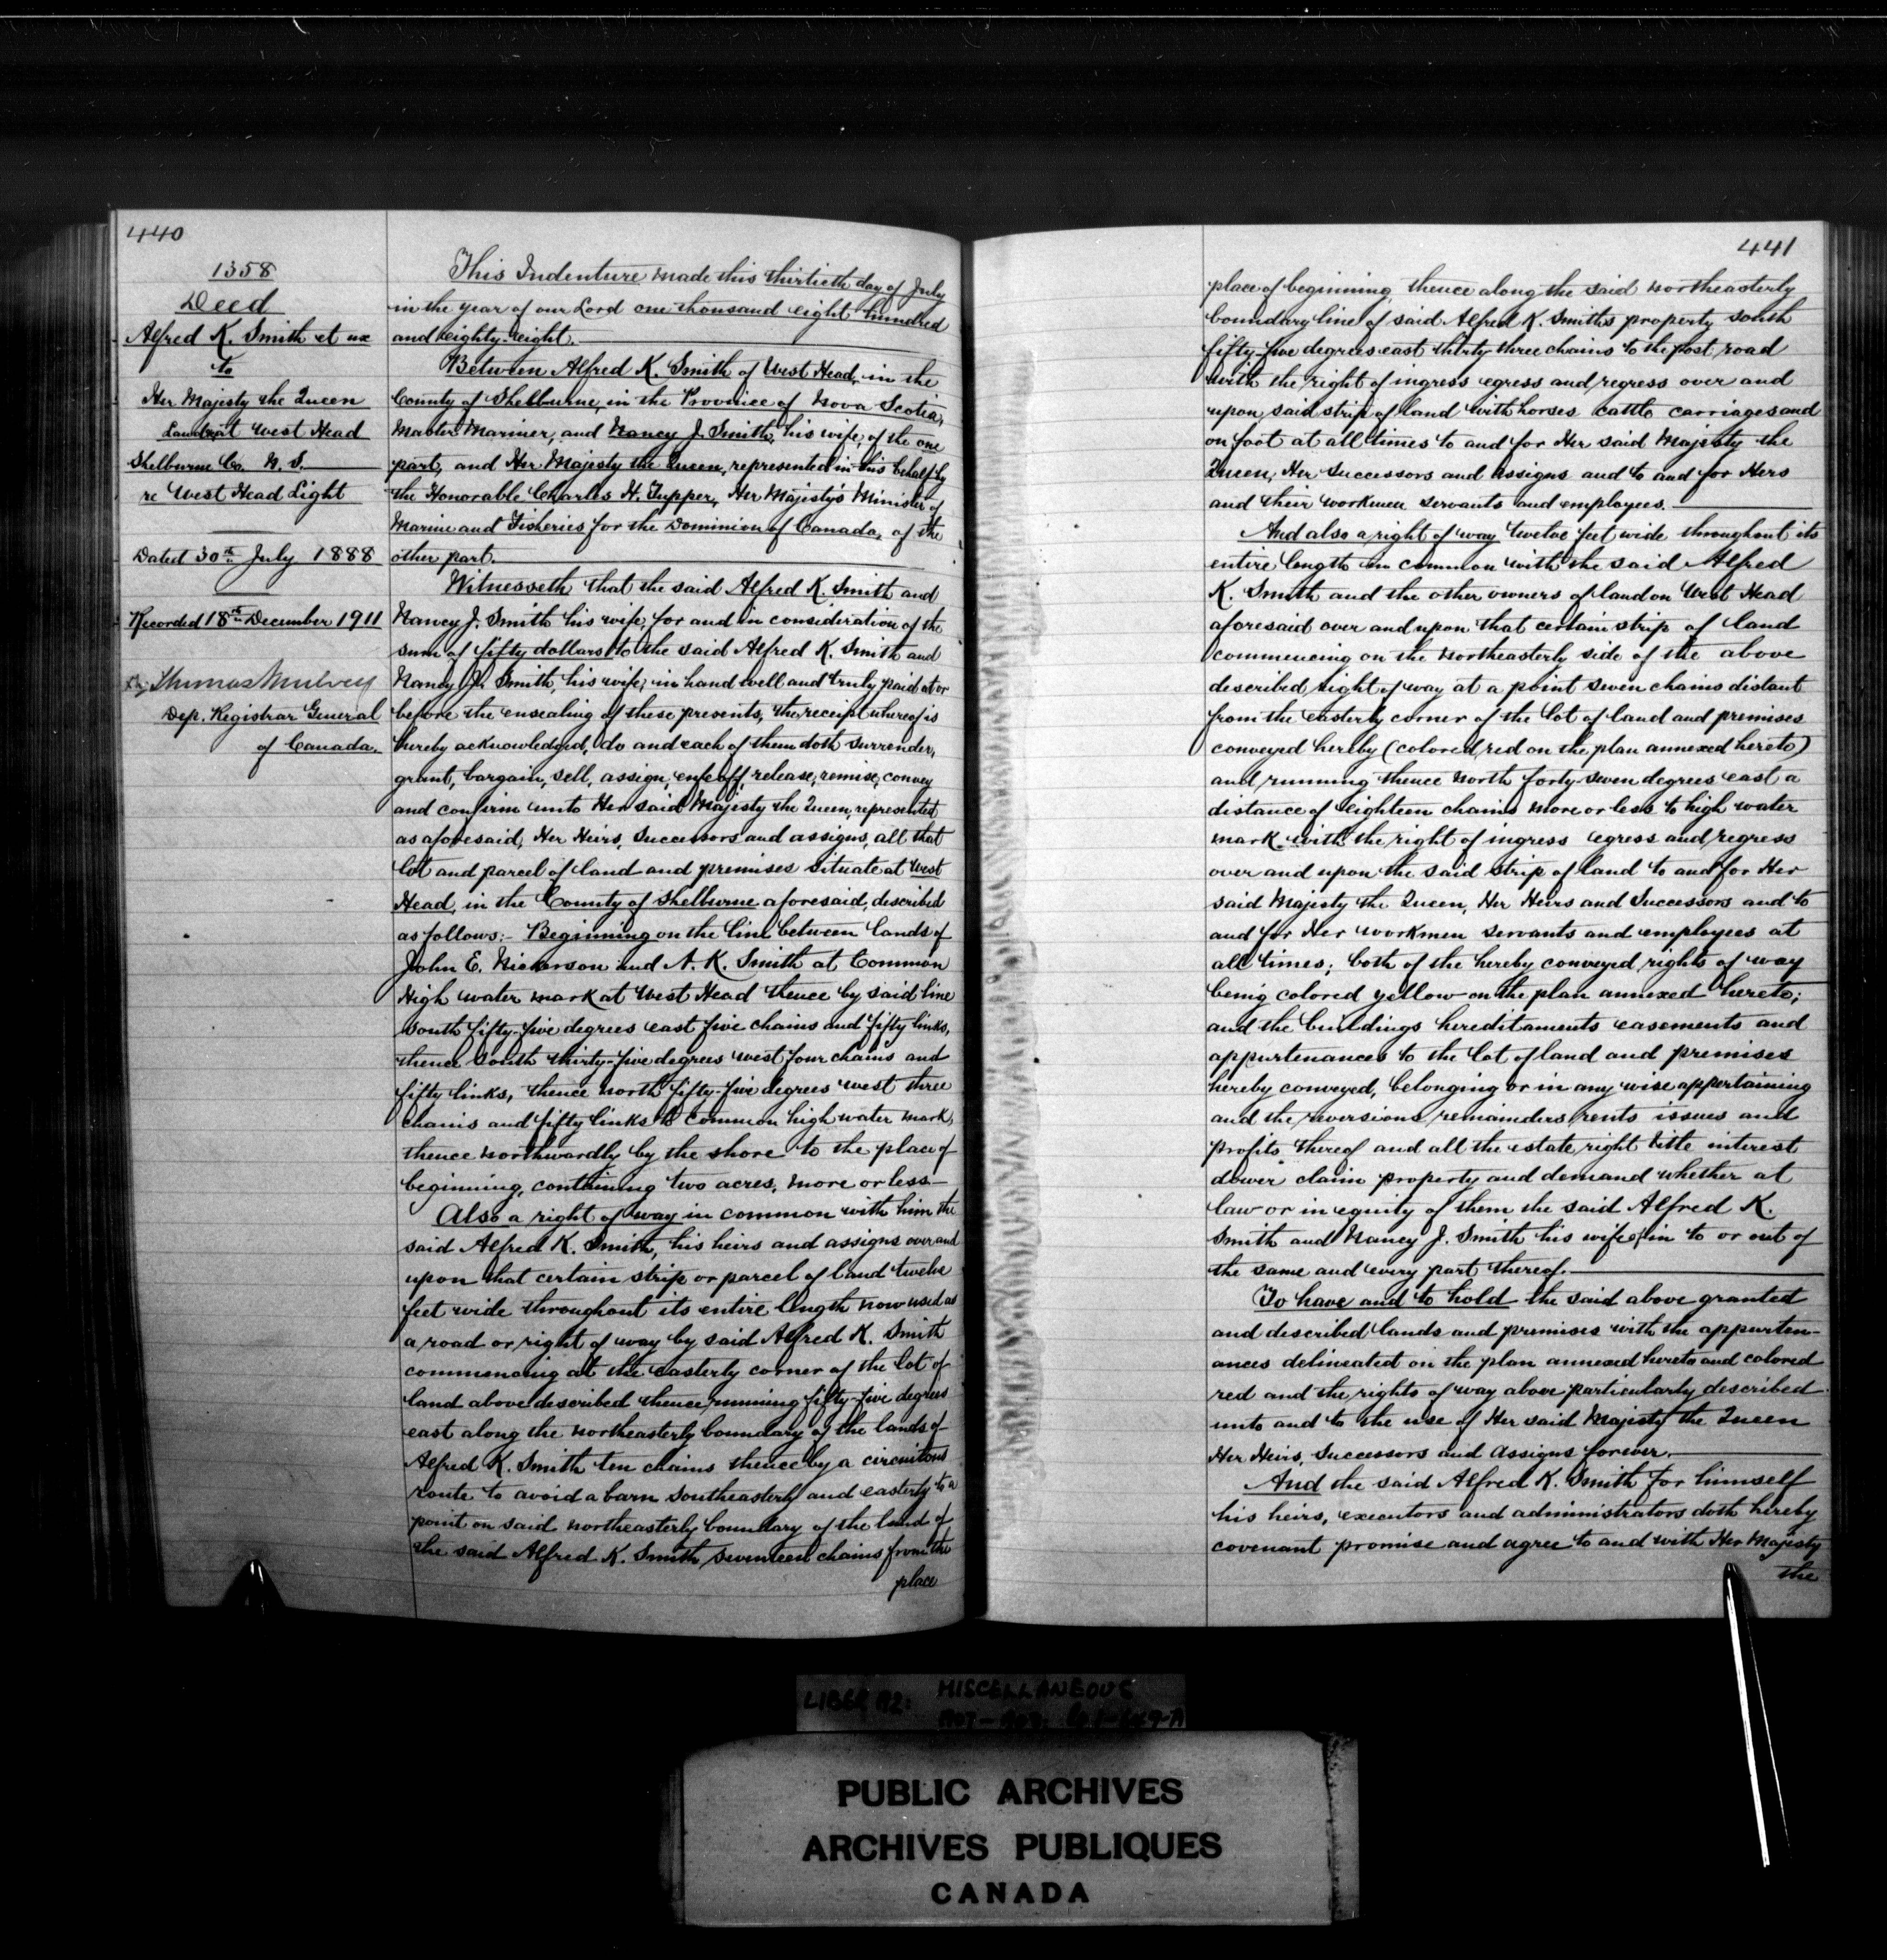 440
1358
Deed
Alfred K. Smith et ux
to
Her Majesty the Queen
Land at West Head
Shelburne Co. N. S.
re West Head Light
Dated 30th July 1888
Recorded 18th December 1911
Thomas Mulvey
Dep. Registrar General
of Canada.
This Indenture made this thirtieth day of July
in the year of our Lord one thousand eight hundred
and eighty-eight.
Between Alfred K. Smith of West Head, in the
County of Shelburne, in the Province of Nova Scotia,
Master Mariner, and Nancy J. Smith, his wife, of the one
part, and Her Majesty the Queen, represented in this behalf by
the Honorable Charles H. Tupper, Her Majesty's Minister of
Marine and Fisheries for the Dominion of Canada, of the
other part.
Witnesseth that the said Alfred K. Smith and
Nancy J. Smith his wife, for and in consideration of the
sum of fifty dollars to the said Alfred K. Smith and
Nancy J. Smith, his wife, in hand well and truly paid at or
before the ensealing of these presents, the receipt whereof is
hereby acknowledged, do and each of them doth surrender,
grant, bargain, sell, assign, enfeoff, release, remise, convey
and confirm unto Her said Majesty the Queen, represented
as aforesaid, Her Heirs, Successors and assigns, all that
lot and parcel of land and premises situate at West
Head, in the County of Shelburne aforesaid, described
as follows:- Beginning on the line between lands of
John E. Nickerson and A. K. Smith at Common
High water mark at West Head thence by said line
south fifty-five degrees east five chains and fifty links,
thence South thirty-five degrees west four chains and
fifty links, thence north fifty-five degrees west three
chains and fifty links to common high water mark,
thence northwardly by the shore to the place of
beginning, containing two acres, more or less-
Also a right of way in common with him the
said Alfred K. Smith, his heirs and assigns over and
upon that certain strip or parcel of land twelve
feet wide throughout its entire length now used as
a road or right of way by said Alfred K. Smith
commencing at the easterly corner of the lot of
land above described thence running fifty-five degrees
east along the northeasterly boundary of the lands of
Alfred K. Smith ten chains thence by a circuitous
route to avoid a barn southeasterly and easterly to a
point on said northeasterly boundary of the land of
the said Alfred K. Smith seventeen chains from the
place
441
place of beginning thence along the said northeasterly
boundary line of said Alfred K. Smith's property south
fifty-five degrees east thirty-three chains to the post road
with the right of ingress egress and regress over and
upon said strip of land with horses cattle carriages and
on foot at all times to and for Her said Majesty the
Queen, Her Successors and Assigns and to and for Hers
and their workmen servants and employees.
And also a right of way twelve feet wide throughout its
entire length in common with the said Alfred
K. Smith and the other owners of land on West Head
aforesaid over and upon that certain strip of land
commencing on the northeasterly side of the above
described right of way at a point seven chains distant
from the easterly corner of the lot of land and premises
conveyed hereby (colored red on the plan annexed hereto)
and running thence north forty-seven degrees east a
distance of eighteen chains more or less to high water
mark with the right of ingress egress and regress
over and upon the said strip of land to and for Her
said Majesty the Queen, Her Heirs and Successors and to
and for Her workmen servants and employees at
all times; both of the hereby conveyed rights of way
being colored yellow on the plan annexed hereto;
and the buildings hereditaments easements and
appurtenances to the lot of land and premises
hereby conveyed, belonging or in any wise appertaining
and the reversions remainders rents issues and
profits thereof and all the estate right title interest
dower claim property and demand whether at
law or in equity of them the said Alfred K.
Smith and Nancy J. Smith his wife of in to or out of
the same and every part thereof.
To have and to hold the said above granted
and described lands and premises with the appurten-
ances delineated on the plan annexed hereto and colored
red and the rights of way above particularly described
unto and to the use of Her said Majesty the Queen
Her Heirs, Successors and Assigns forever.
And the said Alfred K. Smith for himself
his heirs, executors and administrators doth hereby
covenant promise and agree to and with Her Majesty
the
LIBER 172: MISCELLANEOUS
PUBLIC ARCHIVES
ARCHIVES PUBLIQUES
CANADA